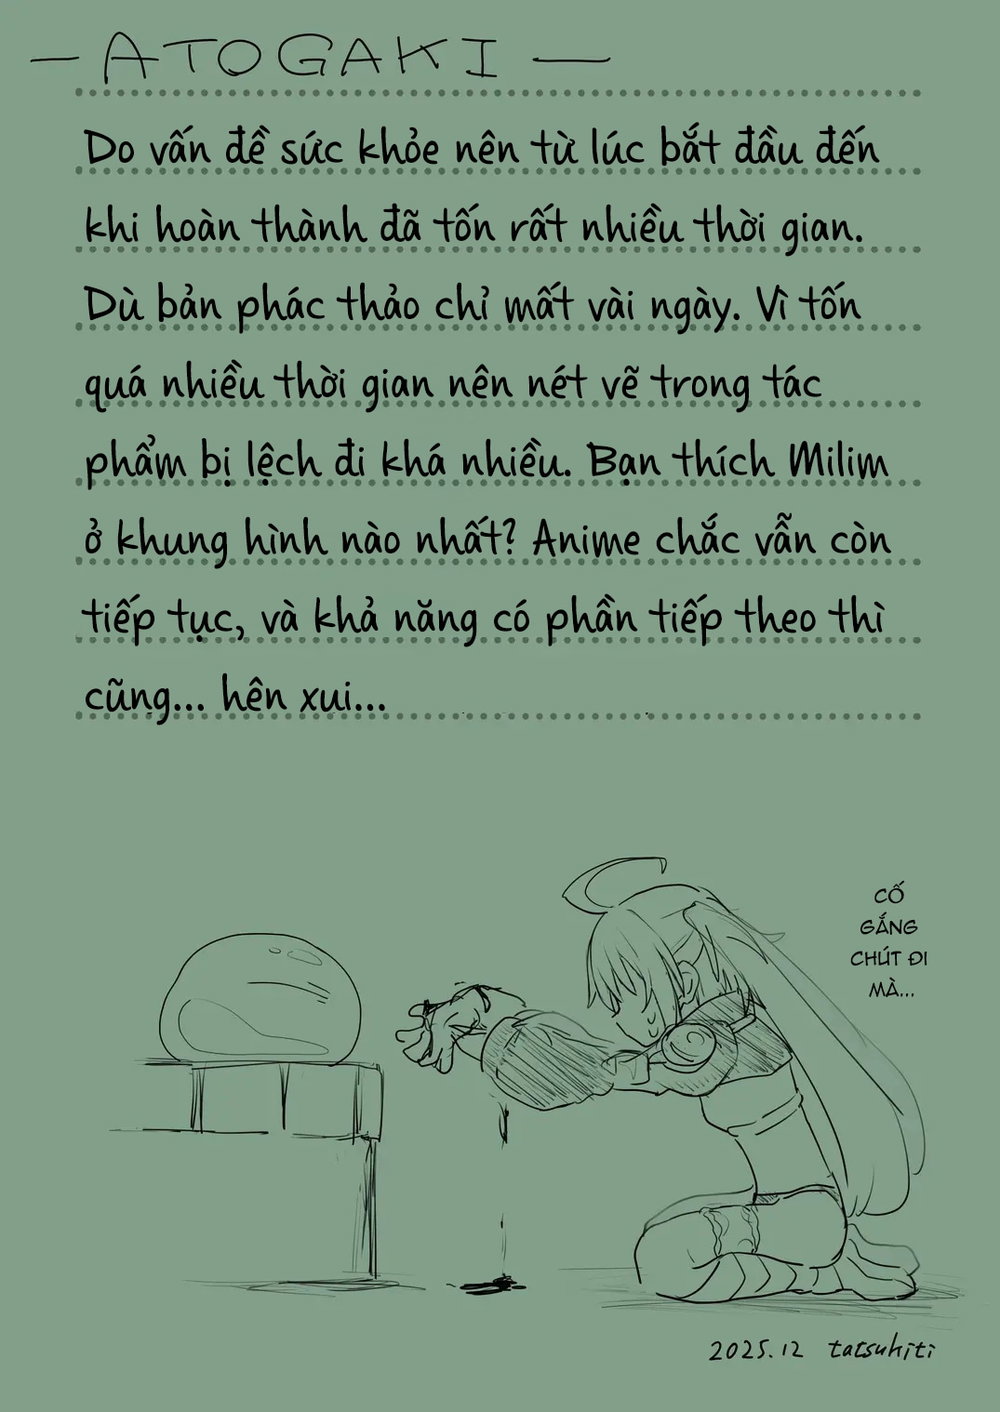 — ATOGAKI —
Do vấn đề sức khỏe nên từ lúc bắt đầu đến
khi hoàn thành đã tốn rất nhiều thời gian.
Dù bản phác thảo chỉ mất vài ngày. Vì tốn
quá nhiều thời gian nên nét vẽ trong tác
phẩm bị lệch đi khá nhiều. Bạn thích Milim
ở khung hình nào nhất? Anime chắc vẫn còn
tiếp tục, và khả năng có phần tiếp theo thì
cũng... hên xui...
CỐ
GẮNG
CHÚT ĐI
MÀ...
2025.12 tatsuhiti